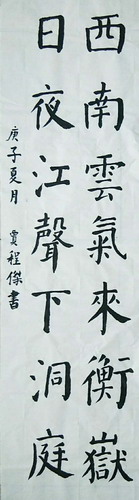 西南雲氣來衡嶽
日夜江聲下洞庭
庚子夏月 賈程傑書